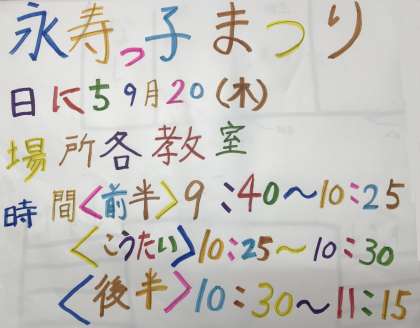 永寿っ子まつり
日にち9月20(木)
場所各教室
時間<前半>9:40~10:25
<こうたい>10:25~10:30
<後半>10:30~11:15